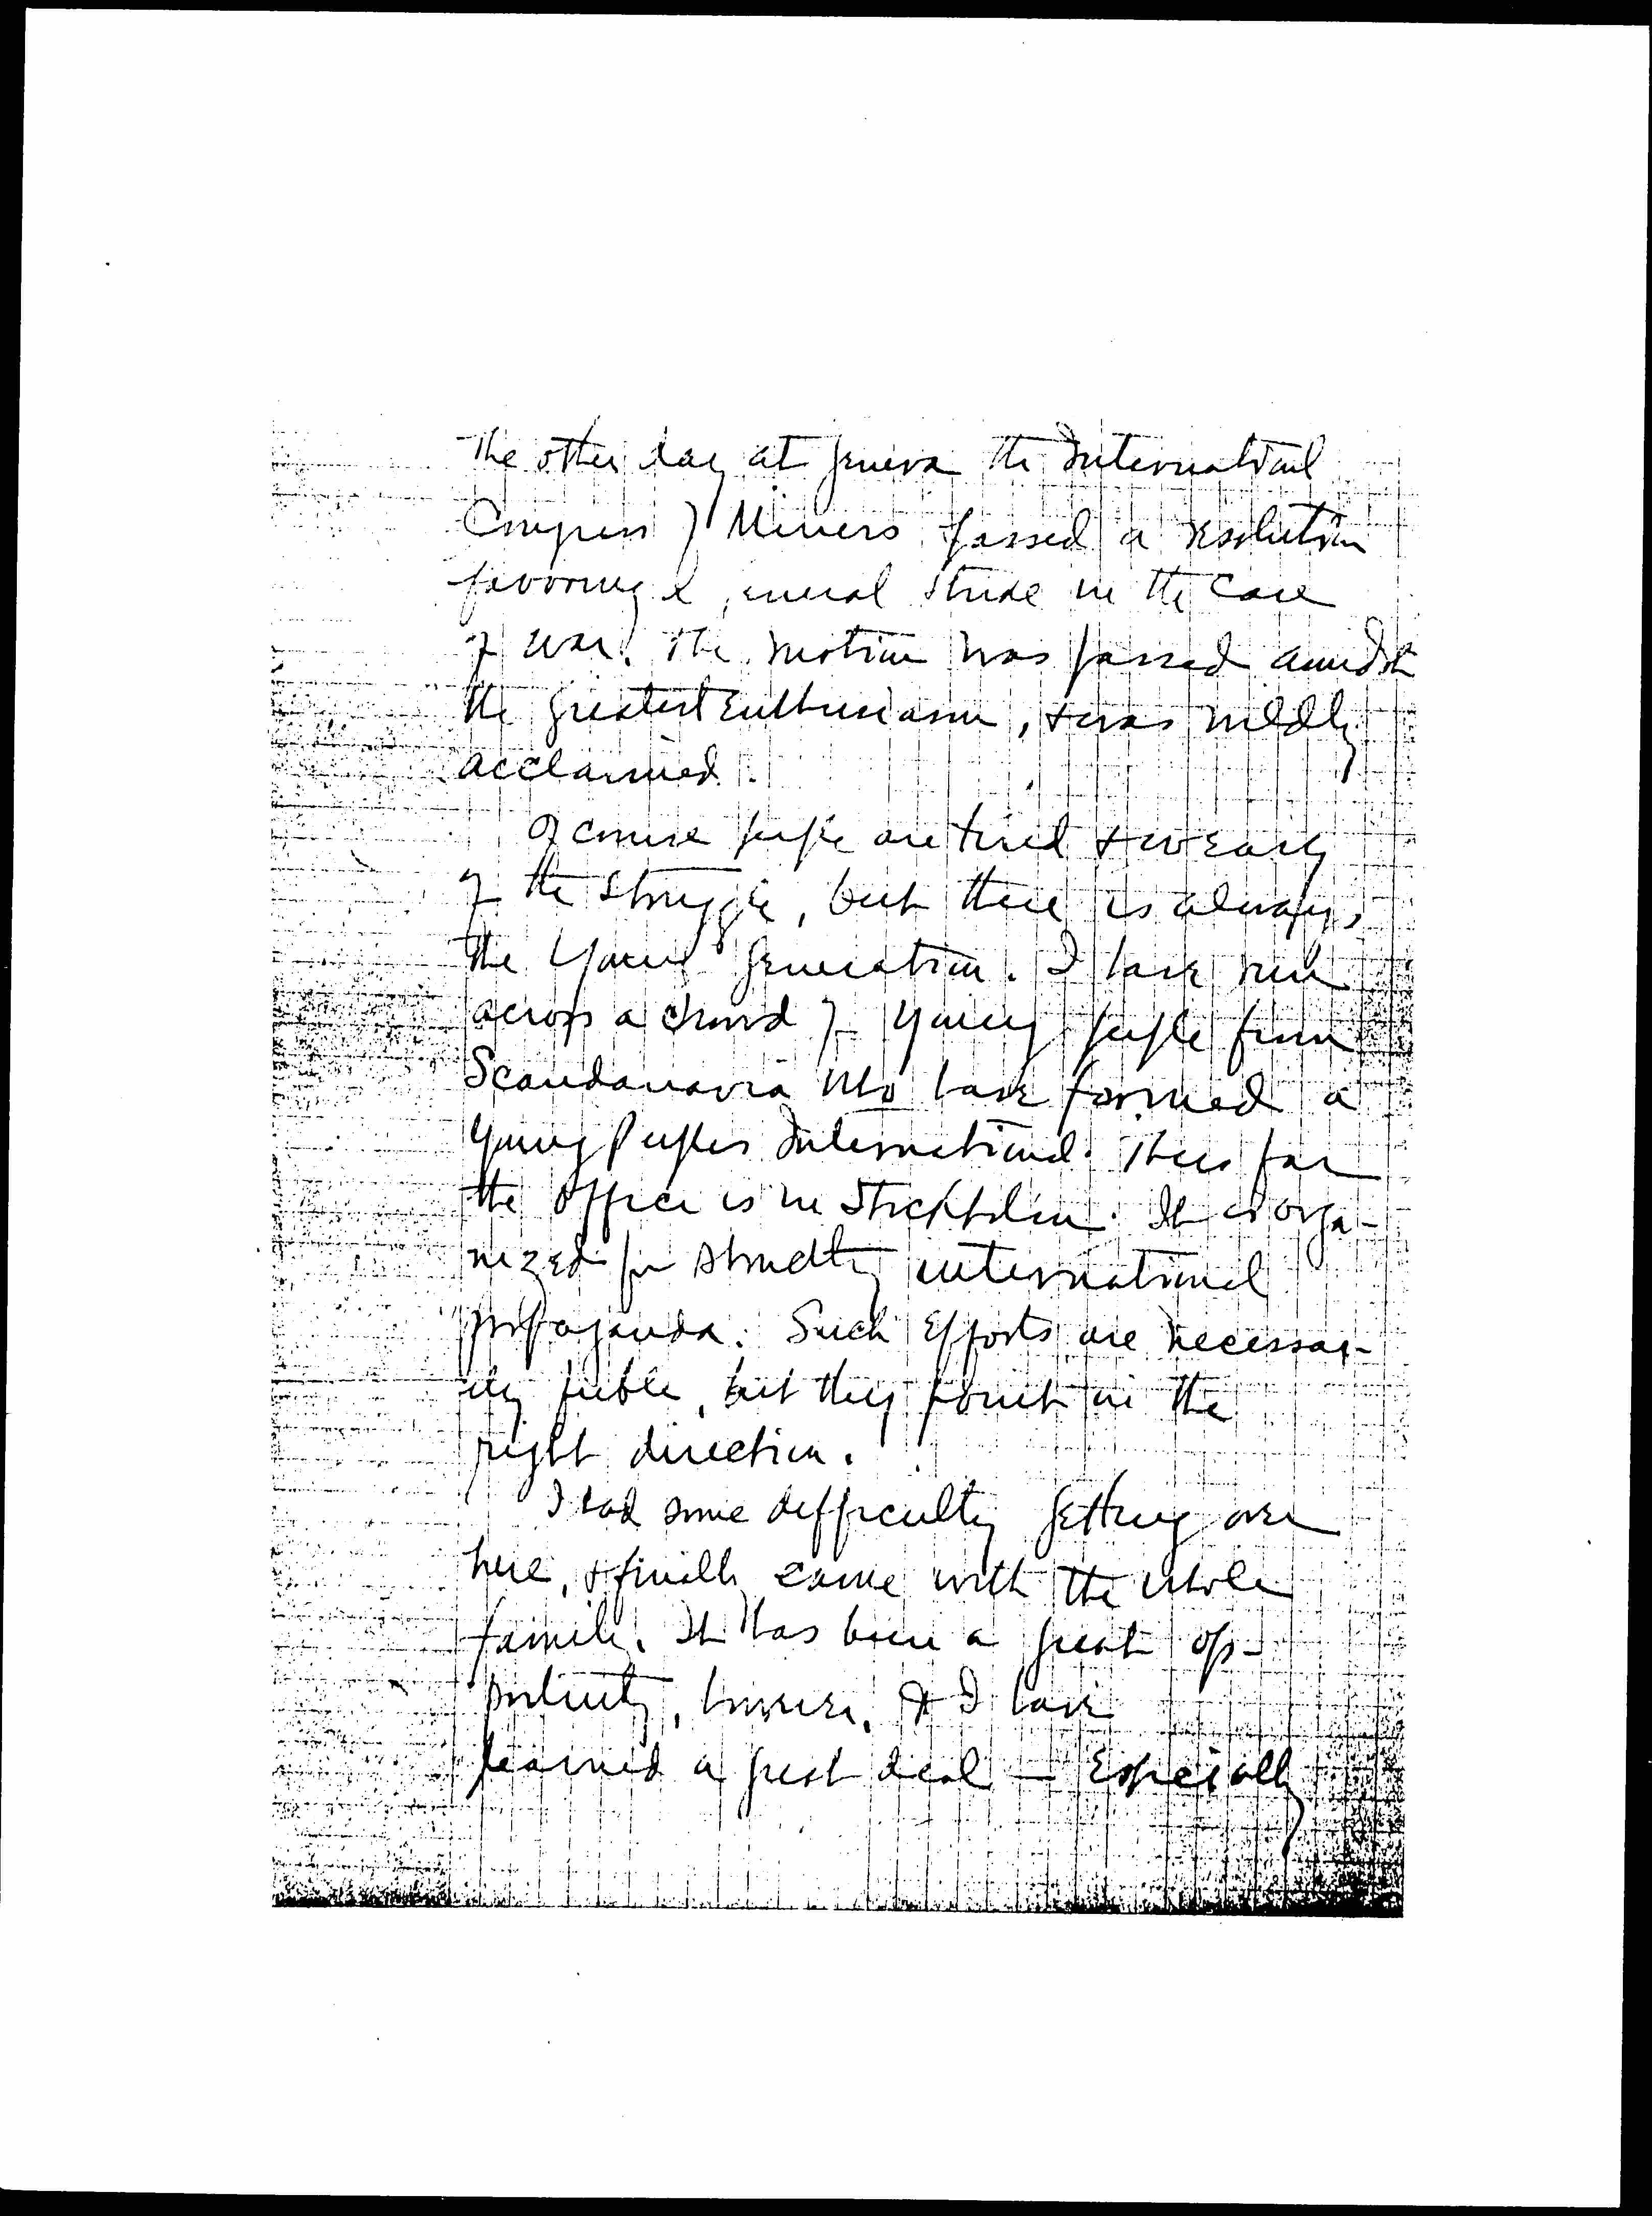 The other day at Geneva the International
Congress of Miners passed a resolution
favoring general strike in the case
of war. The motion was passed amidst
the greatest enthusiasm, & was wildly
acclaimed.
Of course people are tired & weary
of the struggle, but there is always
the young generation. I have run
across a crowd of young people from
Scandanavia who have formed a
Young Peoples International. Thus far
the office is in Stockholm. It is orga-
nized for strictly international
propaganda. Such efforts are necessar-
ily feeble, but they point in the
right direction.
I had some difficulty getting over
here, & finally came with the whole
family. It has been a great op-
portunity, however, & I have
learned a great deal — Especially